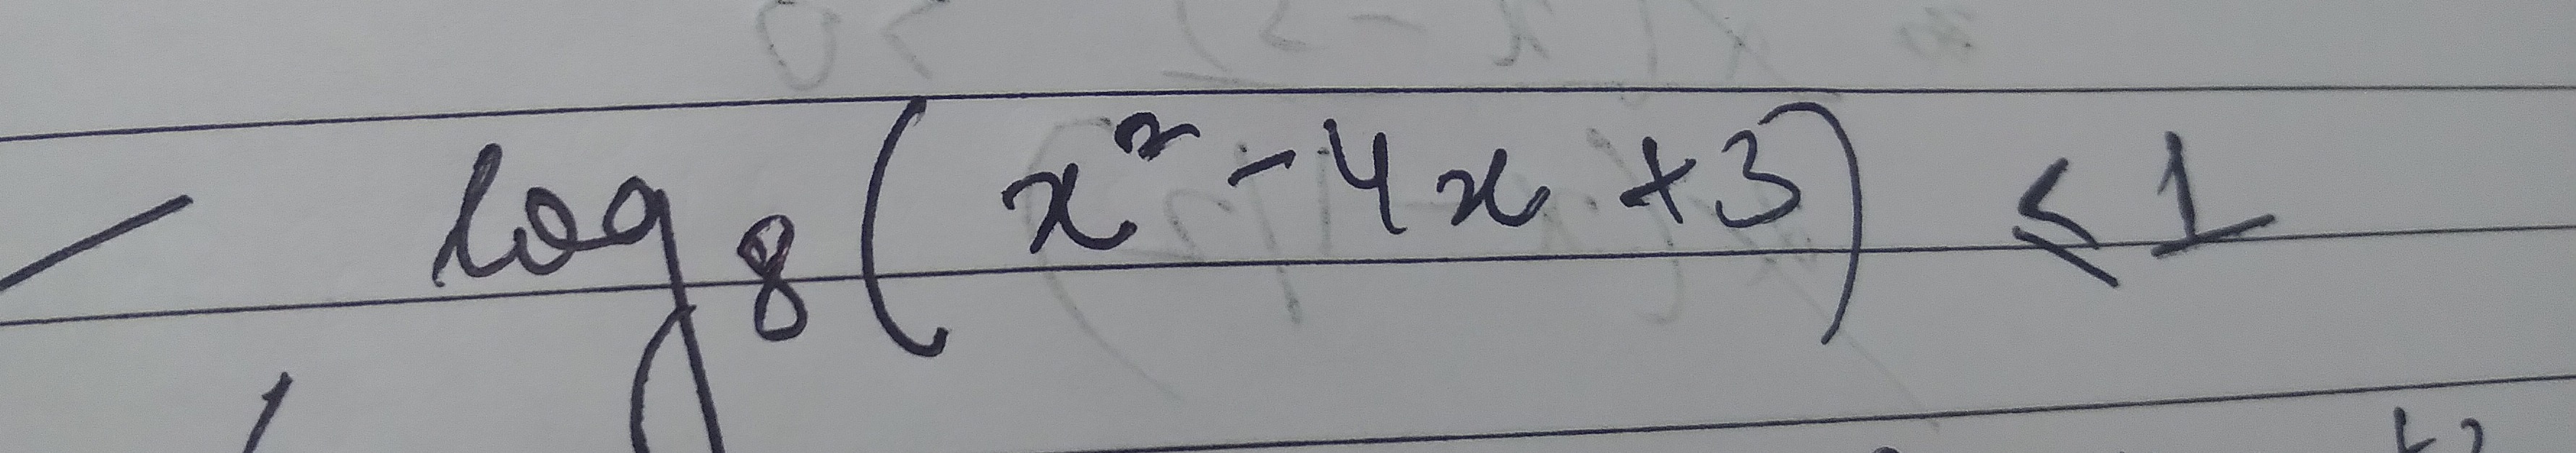 log₈(x² - 4x + 3) ≤ 1